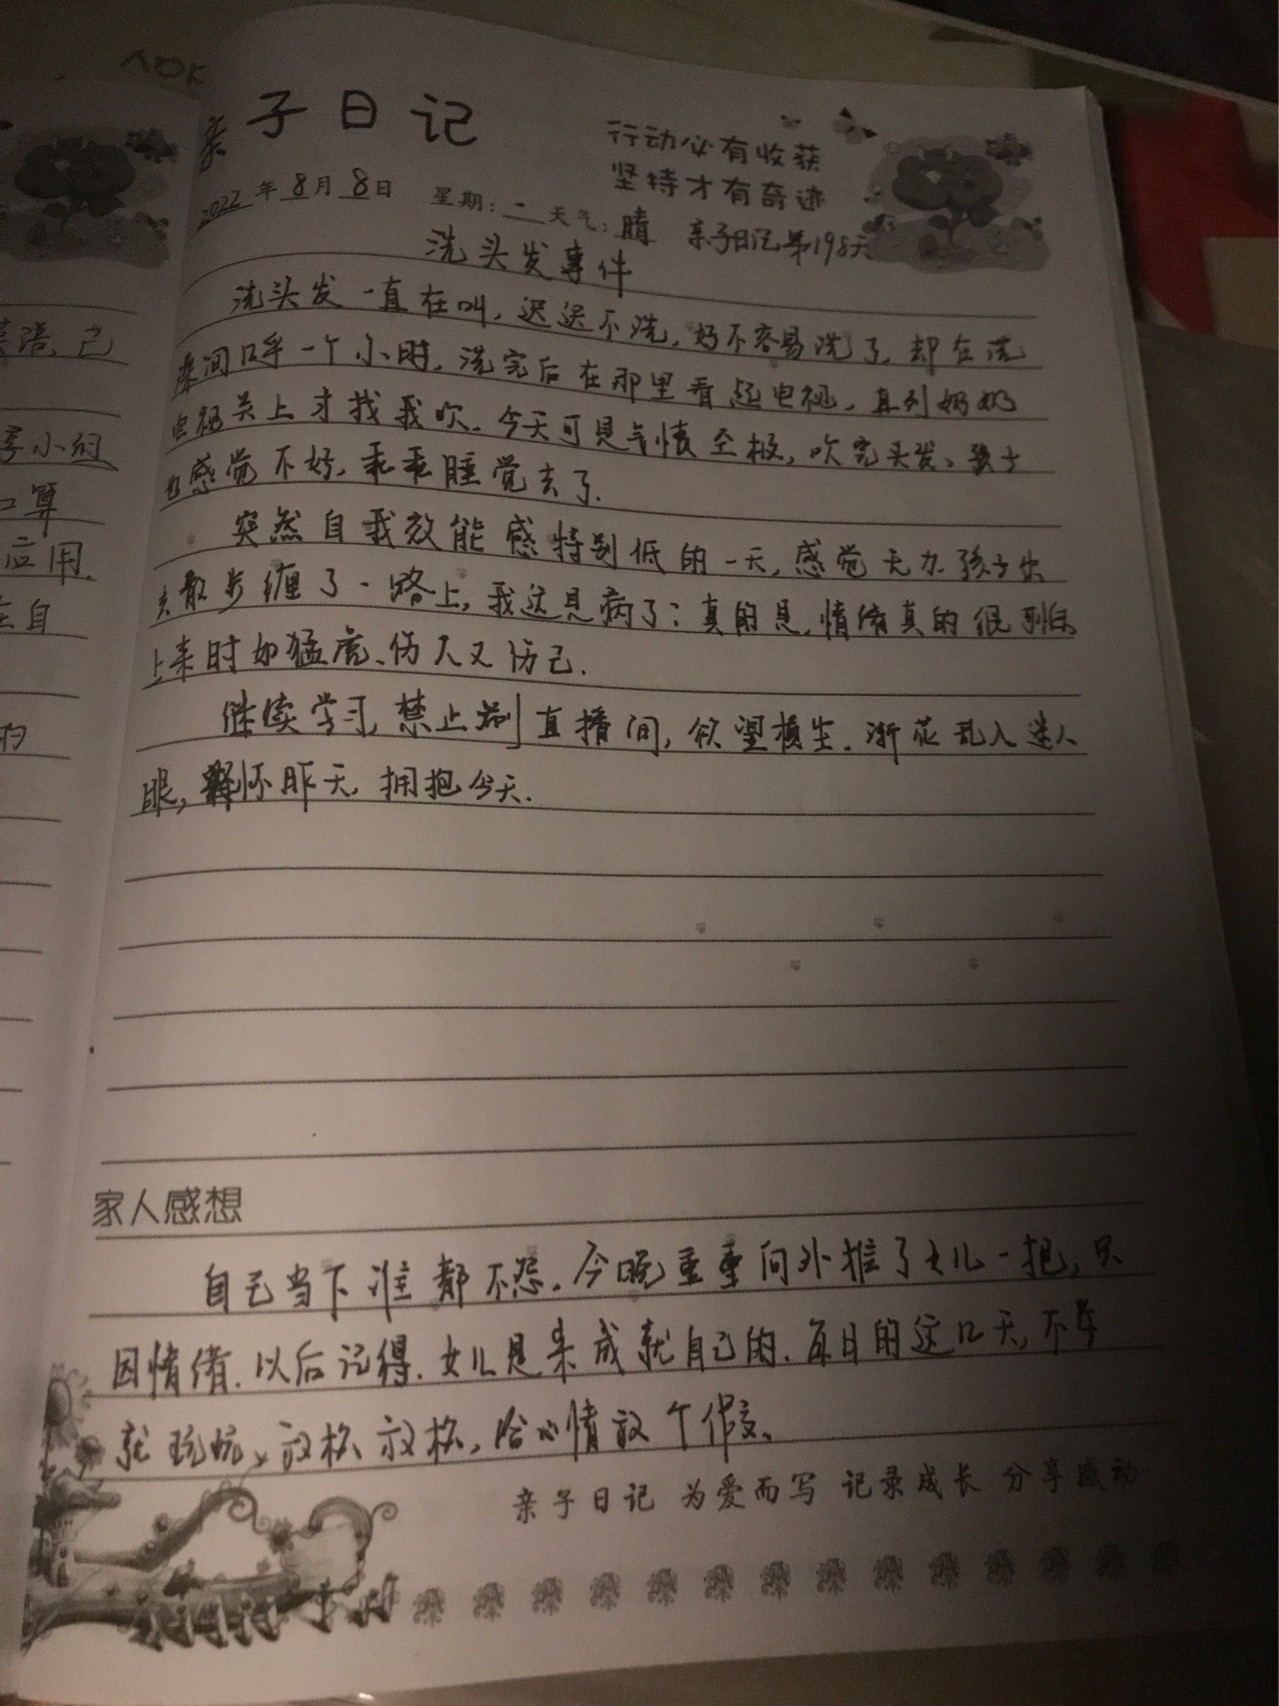 亲子日记
行动必有收获
坚持才有奇迹
2022年8月8日 星期:一 天气:晴 亲子日记第198天
洗头发事件
洗头发一直在叫,迟迟不洗,好不容易洗了,却在洗
澡间呼一个小时,洗完后在那里看起电视,直到奶奶
电视关上才找我吹。今天可是气愤至极,吹完头发,孩子
也感觉不好,乖乖睡觉去了.
突然自我效能感特别低的一天,感觉无力.孩子出
去散步缠了一路上,我这是病了:真的是,情绪真的很
上来时如猛虎、伤人又伤己.
继续学习,禁止刷直播间,欲望横生.渐花乱入迷人
眼,释怀昨天,拥抱今天.
家人感想
自己当下谁都不怨.今晚重重向外推了女儿一把,只
因情绪.以后记得.女儿是来成就自己的.每日的这几天,不
就玩玩,放松放松,给心情放个假。
亲子日记 为爱而写 记录成长 分享感动
英语,己
小组
口算
应用.
在自
的